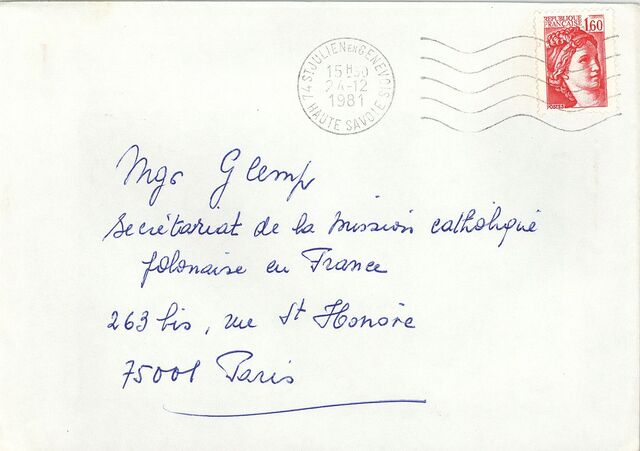 REPUBLIQUE FRANÇAISE 1,60
POSTES
74 ST JULIEN EN GENEVOIS
15 H 30
24-12
1981
HAUTE SAVOIE
Mgr Glemp
Secrétariat de la mission catholique
polonaise en France
263 bis, rue St Honoré
75001 Paris